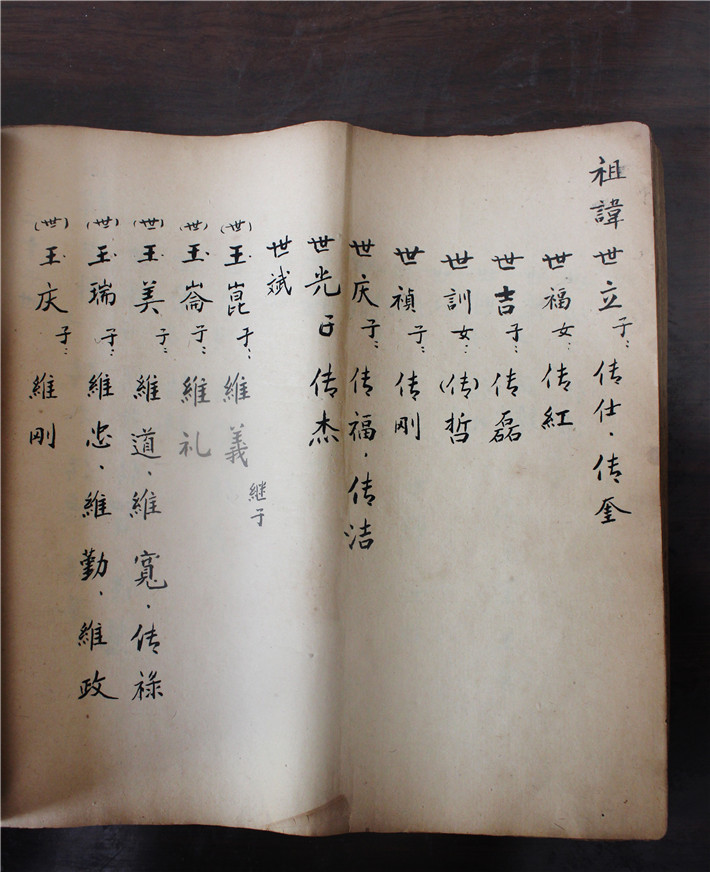 祖諱 世立子: 传仕、传奎
世福女: 传紅
世吉子: 传磊
世訓女: (传)哲
世禎子: 传刚
世庆子: 传福、传洁
世光子 传杰
世斌
(世)玉崑子: 維義 継子
(世)玉崙子: 維礼
(世)玉美子: 維道、維寬、传禄
(世)玉瑞子: 維忠、維勤、維政
(世)玉庆子: 維刚